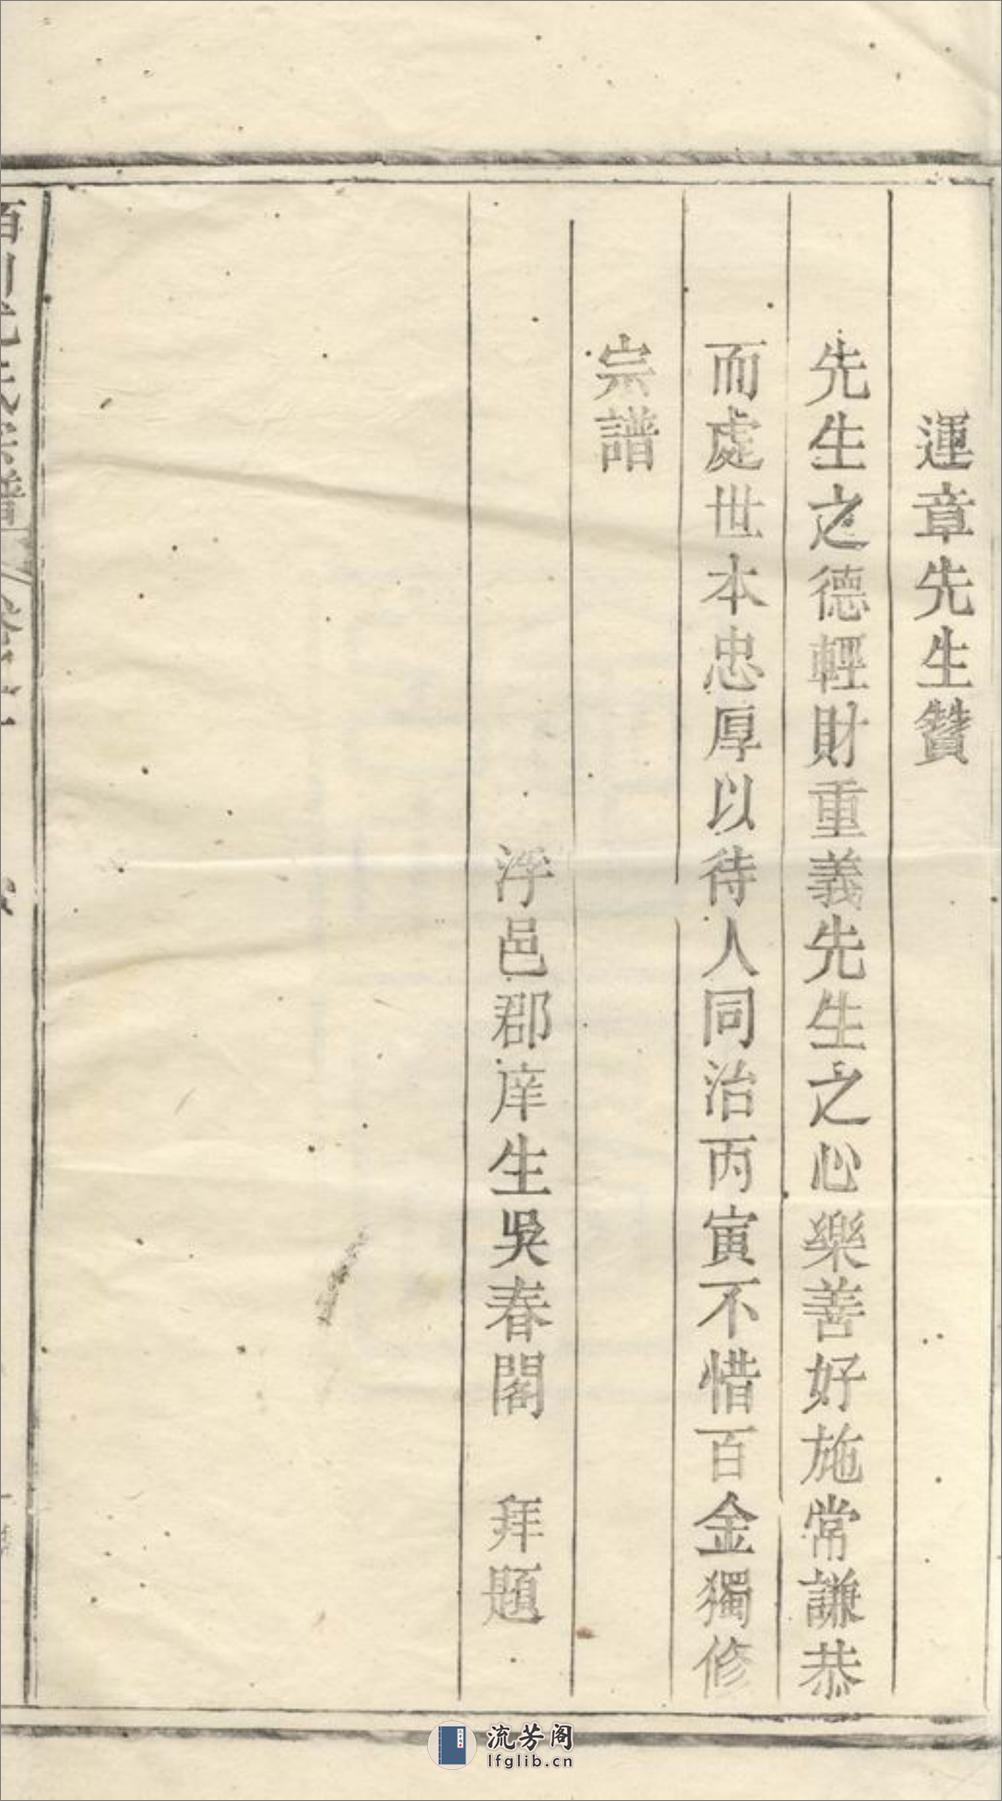 運章先生贊
先生之德輕財重義先生之心樂善好施常謙恭
而處世本忠厚以待人同治丙寅不惜百金獨修
宗譜
浮邑郡庠生吳春閣　拜題
流芳阁
lfglib.cn